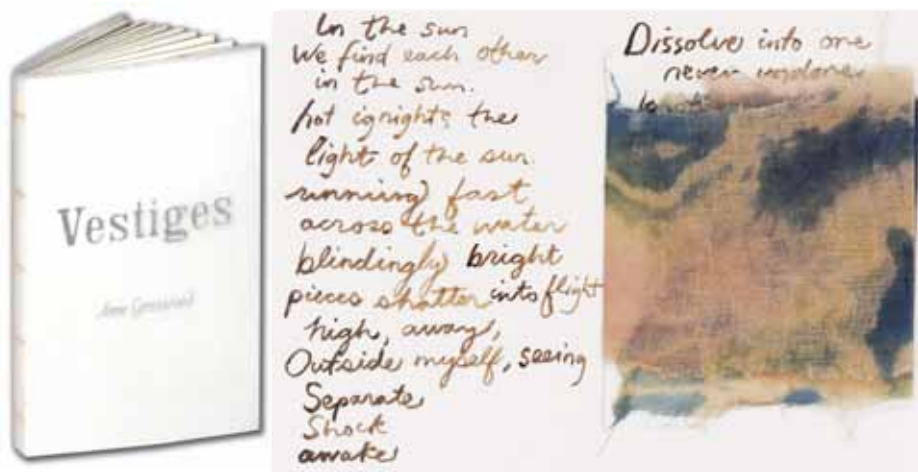 Vestiges
In the sun
We find each other
in the sun.
hot ignights the
light of the sun.
running fast
across the water
blindingly bright
pieces shatter into flight
high, away,
Outside myself, seeing
Separate
Shock
awake
Dissolve into one
never undone